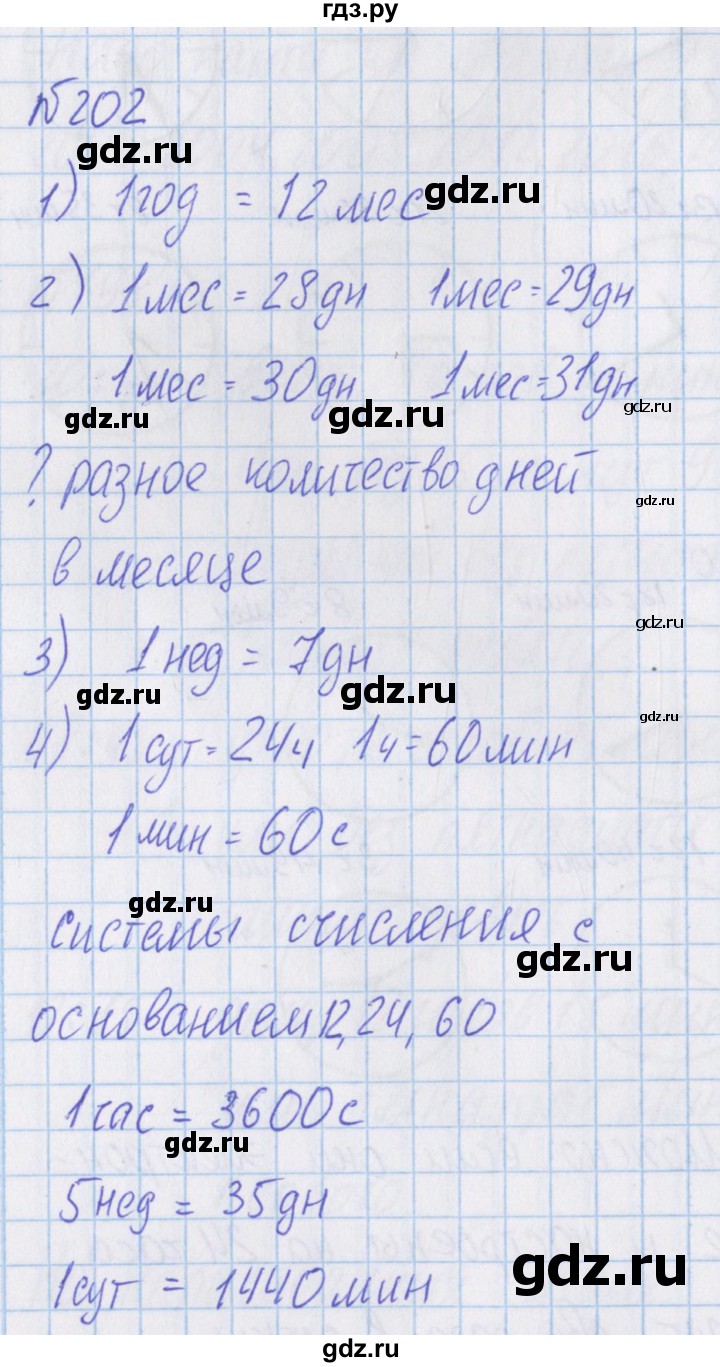 гдз.ру
№202
gdz.ru
1) 1год = 12мес
gdz.ru
2) 1мес = 28дн 1мес = 29дн
1мес = 30дн 1мес = 31дн
gdz.ru
gdz.ru
gdz.ru
? разное количество дней
gdz.ru
в месяце
gdz.ru
3) 1нед = 7дн
gdz.ru
gdz.ru
gdz.ru
4) 1сут = 24ч 1ч = 60мин
1мин = 60с
gdz.ru
системы счисления с
gdz.ru
основанием 12, 24, 60
1час = 3600с
gdz.ru
5нед = 35дн
gdz.ru
1сут = 1440мин
gdz.ru